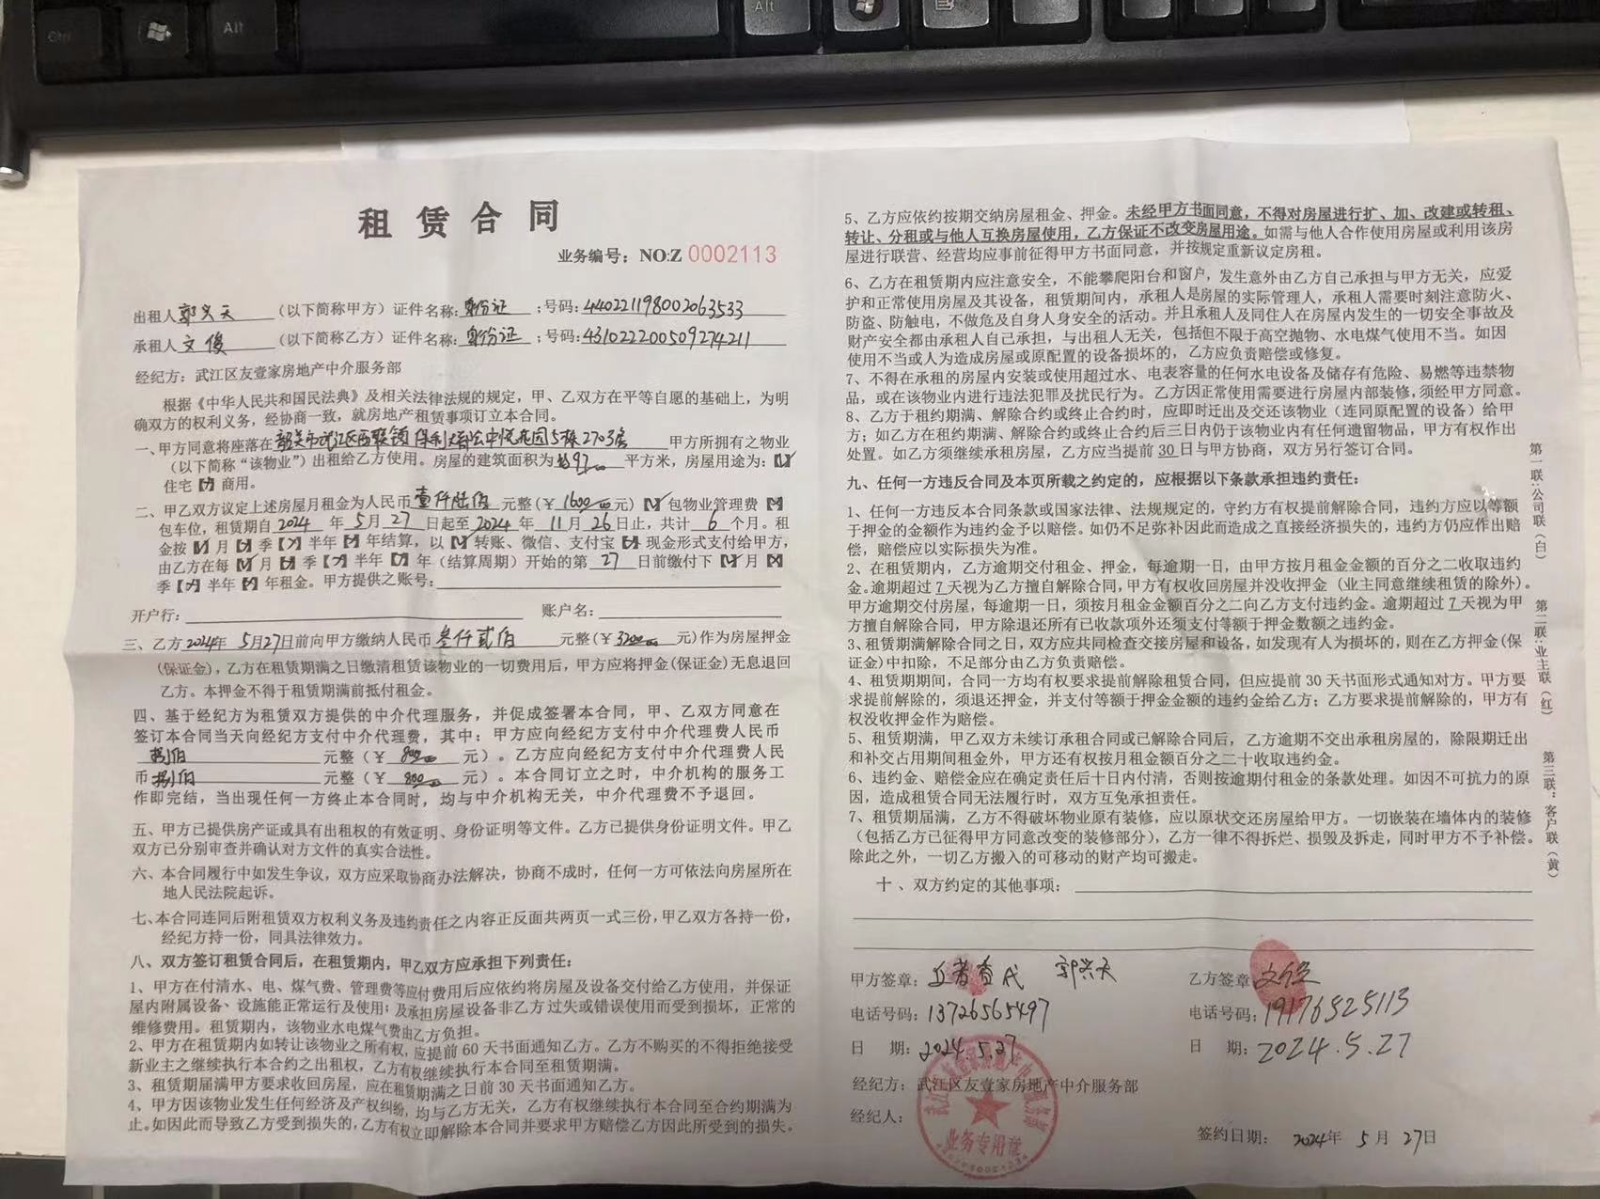 租赁合同
业务编号：NO:Z 0002113
出租人 （以下简称甲方）证件名称:身份证 ；号码: 440221198002063533
承租人 文俊 （以下简称乙方）证件名称:身份证 ；号码: 431022200509274211
经纪方：武江区友壹家房地产中介服务部
根据《中华人民共和国民法典》及相关法律法规的规定，甲、乙双方在平等自愿的基础上，为明
确双方的权利义务，经协商一致，就房地产租赁事项订立本合同。
一、甲方同意将座落在 韶关市武江区西联镇保利 中悦花园5栋2703房 甲方所拥有之物业
（以下简称“该物业”）出租给乙方使用。房屋的建筑面积为 97 平方米，房屋用途为：【✓】
住宅【 】商用。
二、甲乙双方议定上述房屋月租金为人民币 壹仟陆佰 元整（￥ 1600 元）【✓】包物业管理费【 】
包车位，租赁期自 2024 年 5 月 27 日起至 2024 年 11 月 26 日止，共计 6 个月。租
金按【 】月【 】季【 】半年【 】年结算，以【✓】转账、微信、支付宝【 】现金形式支付给甲方，
由乙方在每【 】月【 】季【 】半年【 】年（结算周期）开始的第 27 日前缴付下【 】月【 】
季【 】半年【 】年租金。甲方提供之账号：
开户行： 账户名：
三、乙方 2024年 5月27日前向甲方缴纳人民币 叁仟贰佰 元整（￥ 3200 元）作为房屋押金
(保证金)，乙方在租赁期满之日缴清租赁该物业的一切费用后，甲方应将押金(保证金)无息退回
乙方。本押金不得于租赁期满前抵付租金。
四、基于经纪方为租赁双方提供的中介代理服务，并促成签署本合同，甲、乙双方同意在
签订本合同当天向经纪方支付中介代理费，其中：甲方应向经纪方支付中介代理费人民币
捌佰 元整（￥ 800 元）。乙方应向经纪方支付中介代理费人民
币 捌佰 元整（￥ 800 元）。本合同订立之时，中介机构的服务工
作即完结，当出现任何一方终止本合同时，均与中介机构无关，中介代理费不予退回。
五、甲方已提供房产证或具有出租权的有效证明、身份证明等文件。乙方已提供身份证明文件。甲乙
双方已分别审查并确认对方文件的真实合法性。
六、本合同履行中如发生争议，双方应采取协商办法解决，协商不成时，任何一方可依法向房屋所在
地人民法院起诉。
七、本合同连同后附租赁双方权利义务及违约责任之内容正反面共两页一式三份，甲乙双方各持一份，
经纪方持一份，同具法律效力。
八、双方签订租赁合同后，在租赁期内，甲乙双方应承担下列责任：
1、甲方在付清水、电、煤气费、管理费等应付费用后应依约将房屋及设备交付给乙方使用，并保证
屋内附属设备、设施能正常运行及使用；及承担房屋设备非乙方过失或错误使用而受到损坏，正常的
维修费用。租赁期内，该物业水电煤气费由乙方负担。
2、甲方在租赁期内如转让该物业之所有权，应提前60天书面通知乙方。乙方不购买的不得拒绝接受
新业主之继续执行本合约之出租权，乙方有权继续执行本合同至租赁期满。
3、租赁期届满甲方要求收回房屋，应在租赁期满之日前30天书面通知乙方。
4、甲方因该物业发生任何经济及产权纠纷，均与乙方无关，乙方有权继续执行本合同至合约期满为
止。如因此而导致乙方受到损失的，乙方有权立即解除本合同并要求甲方赔偿乙方因此所受到的损失。
5、乙方应依约按期交纳房屋租金、押金。未经甲方书面同意，不得对房屋进行扩、加、改建或转租、
转让、分租或与他人互换房屋使用，乙方保证不改变房屋用途。如需与他人合作使用房屋或利用该房
屋进行联营、经营均应事前征得甲方书面同意，并按规定重新议定房租。
6、乙方在租赁期内应注意安全，不能攀爬阳台和窗户，发生意外由乙方自己承担与甲方无关，应爱
护和正常使用房屋及其设备，租赁期间内，承租人是房屋的实际管理人，承租人需要时刻注意防火、
防盗、防触电，不做危及自身人身安全的活动。并且承租人及同住人在房屋内发生的一切安全事故及
财产安全都由承租人自己承担，与出租人无关，包括但不限于高空抛物、水电煤气使用不当。如因
使用不当或人为造成房屋或原配置的设备损坏的，乙方应负责赔偿或修复。
7、不得在承租的房屋内安装或使用超过水、电表容量的任何水电设备及储存有危险、易燃等违禁物
品，或在该物业内进行违法犯罪及扰民行为。乙方因正常使用需要进行房屋内部装修，须经甲方同意。
8、乙方于租约期满、解除合约或终止合约时，应即时迁出及交还该物业（连同原配置的设备）给甲
方；如乙方在租约期满、解除合约或终止合约后三日内仍于该物业内有任何遗留物品，甲方有权作出
处置。如乙方须继续承租房屋，乙方应当提前30日与甲方协商，双方另行签订合同。
九、任何一方违反合同及本页所载之约定的，应根据以下条款承担违约责任：
1、任何一方违反本合同条款或国家法律、法规规定的，守约方有权提前解除合同，违约方应以等额
于押金的金额作为违约金予以赔偿。如仍不足弥补因此而造成之直接经济损失的，违约方仍应作出赔
偿，赔偿应以实际损失为准。
2、在租赁期内，乙方逾期交付租金、押金，每逾期一日，由甲方按月租金金额的百分之二收取违约
金。逾期超过7天视为乙方擅自解除合同，甲方有权收回房屋并没收押金（业主同意继续租赁的除外）。
甲方逾期交付房屋，每逾期一日，须按月租金金额百分之二向乙方支付违约金。逾期超过7天视为甲
方擅自解除合同，甲方除退还所有已收款项外还须支付等额于押金数额之违约金。
3、租赁期满解除合同之日，双方应共同检查交接房屋和设备，如发现有人为损坏的，则在乙方押金(保
证金)中扣除，不足部分由乙方负责赔偿。
4、租赁期期间，合同一方均有权要求提前解除租赁合同，但应提前30天书面形式通知对方。甲方要
求提前解除的，须退还押金，并支付等额于押金金额的违约金给乙方；乙方要求提前解除的，甲方有
权没收押金作为赔偿。
5、租赁期满，甲乙双方未续订承租合同或已解除合同后，乙方逾期不交出承租房屋的，除限期迁出
和补交占用期间租金外，甲方还有权按月租金额百分之二十收取违约金。
6、违约金、赔偿金应在确定责任后十日内付清，否则按逾期付租金的条款处理。如因不可抗力的原
因，造成租赁合同无法履行时，双方互免承担责任。
7、租赁期届满，乙方不得破坏物业原有装修，应以原状交还房屋给甲方。一切嵌装在墙体内的装修
（包括乙方已征得甲方同意改变的装修部分），乙方一律不得拆烂、损毁及拆走，同时甲方不予补偿。
除此之外，一切乙方搬入的可移动的财产均可搬走。
十、双方约定的其他事项：
甲方签章： 乙方签章： 文俊
电话号码： 13726565497 电话号码： 19176525113
日 期： 2024.5.27 日 期： 2024.5.27
经纪方：武江区友壹家房地产中介服务部
经纪人：
签约日期： 2024年 5月 27日
业务专用章
第一联：公司联（白） 第二联：业主联（红） 第三联：客户联（黄）
Ctrl Alt Alt